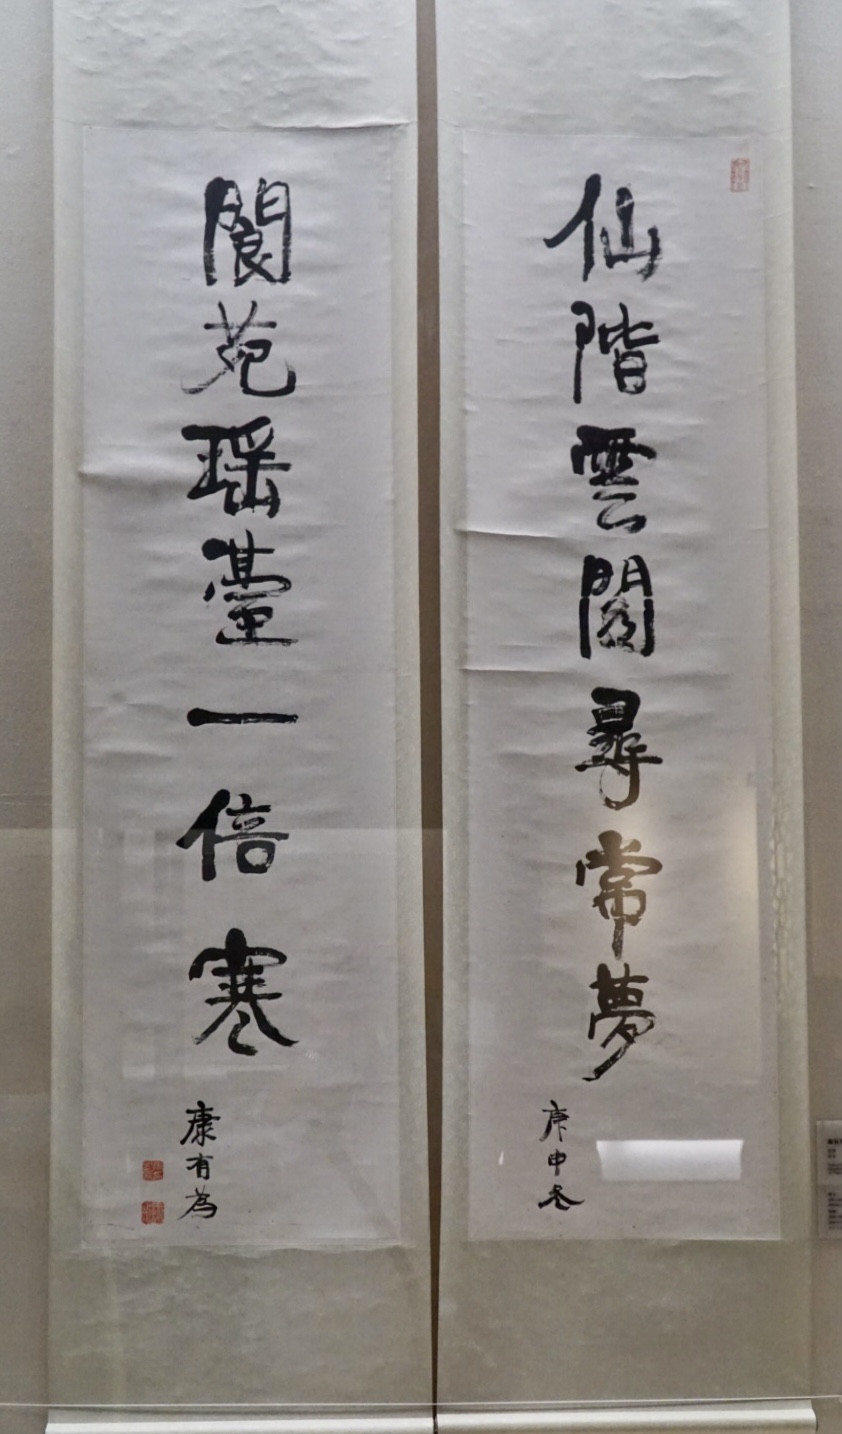 仙階雲閣尋常夢
庚申冬
閬苑瑶臺一倍寒
康有為